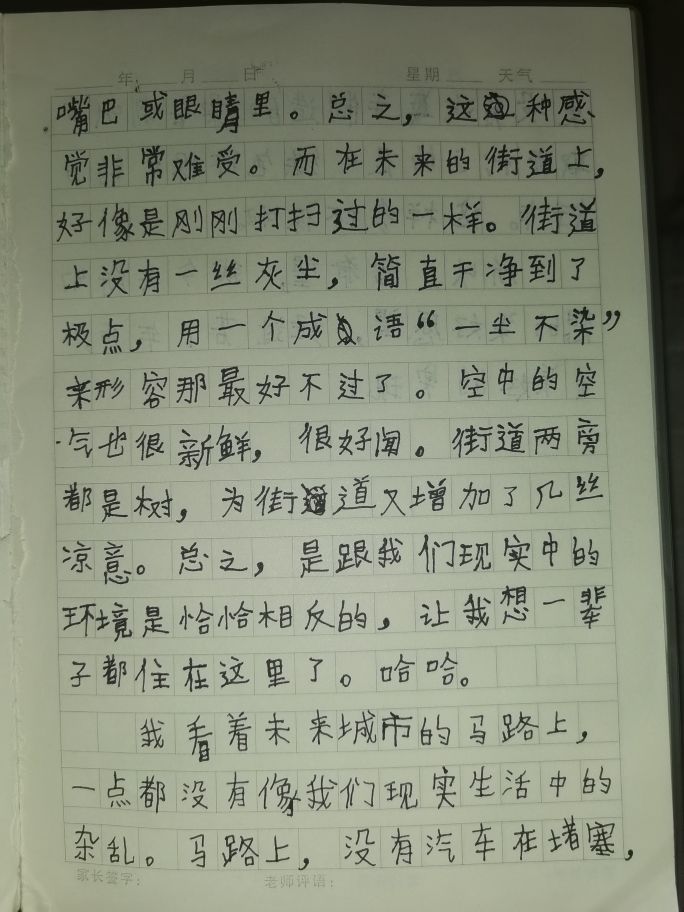 年 月 日 星期 天气
嘴巴或眼睛里。总之，这种感
觉非常难受。而在未来的街道上，
好像是刚刚打扫过的一样。街道
上没有一丝灰尘，简直干净到了
极点，用一个成语“一尘不染”
来形容那最好不过了。空中的空
气也很新鲜，很好闻。街道两旁
都是树，为街道又增加了几丝
凉意。总之，是跟我们现实中的
环境是恰恰相反的，让我想一辈
子都住在这里了。哈哈。
我看着未来城市的马路上，
一点都没有像我们现实生活中的
杂乱。马路上，没有汽车在堵塞，
家长签字： 老师评语：